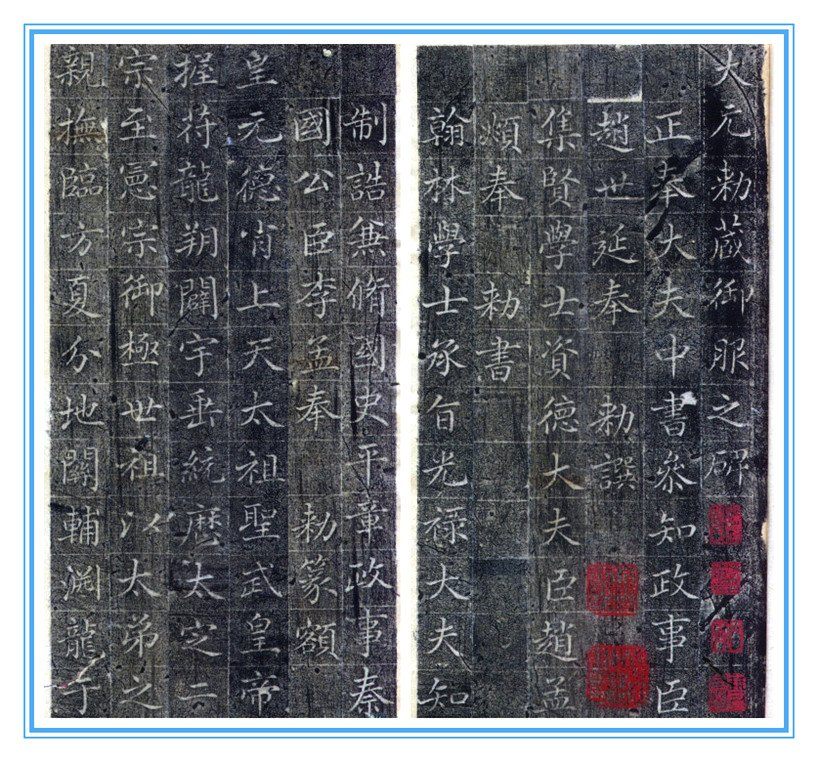 大元勑藏御服之碑
正奉大夫中書叅知政事臣
趙世延奉勑譔
集賢學士資德大夫臣趙孟
頫奉勑書
翰林學士承旨光禄大夫知
制誥兼脩國史平章政事秦
國公臣李孟奉勑篆額
皇元德肖上天太祖聖武皇帝
握符龍朔闢宇垂統厯太定二
宗至憲宗御極世祖以太弟之
親撫臨方夏分地關輔淵龍于